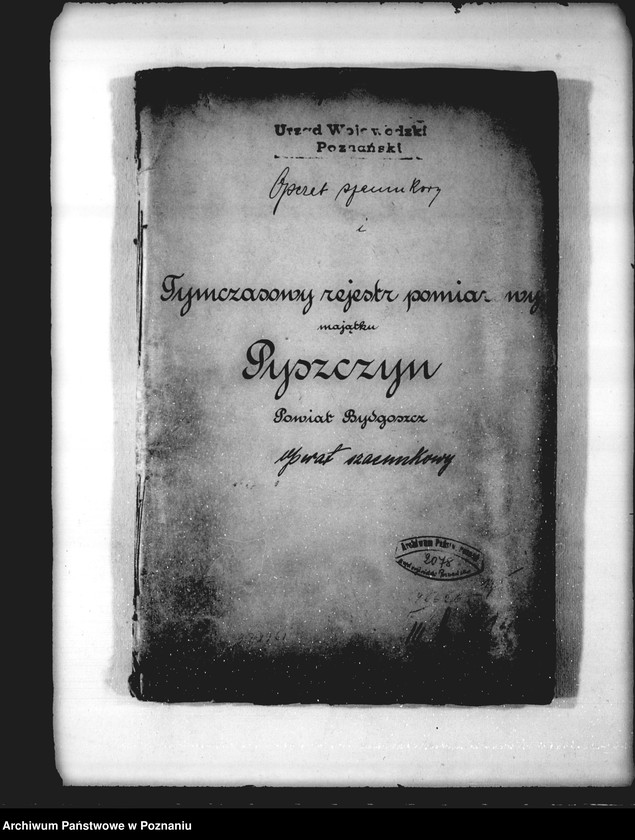 Urząd Wojewódzki
Poznański
Operat szacunkowy
i
Tymczasowy rejestr pomiarowy
majątku
Pyszczyn
Powiat Bydgoszcz
operat szacunkowy
Archiwum Państw.
2075
Archiwum Państwowe w Poznaniu